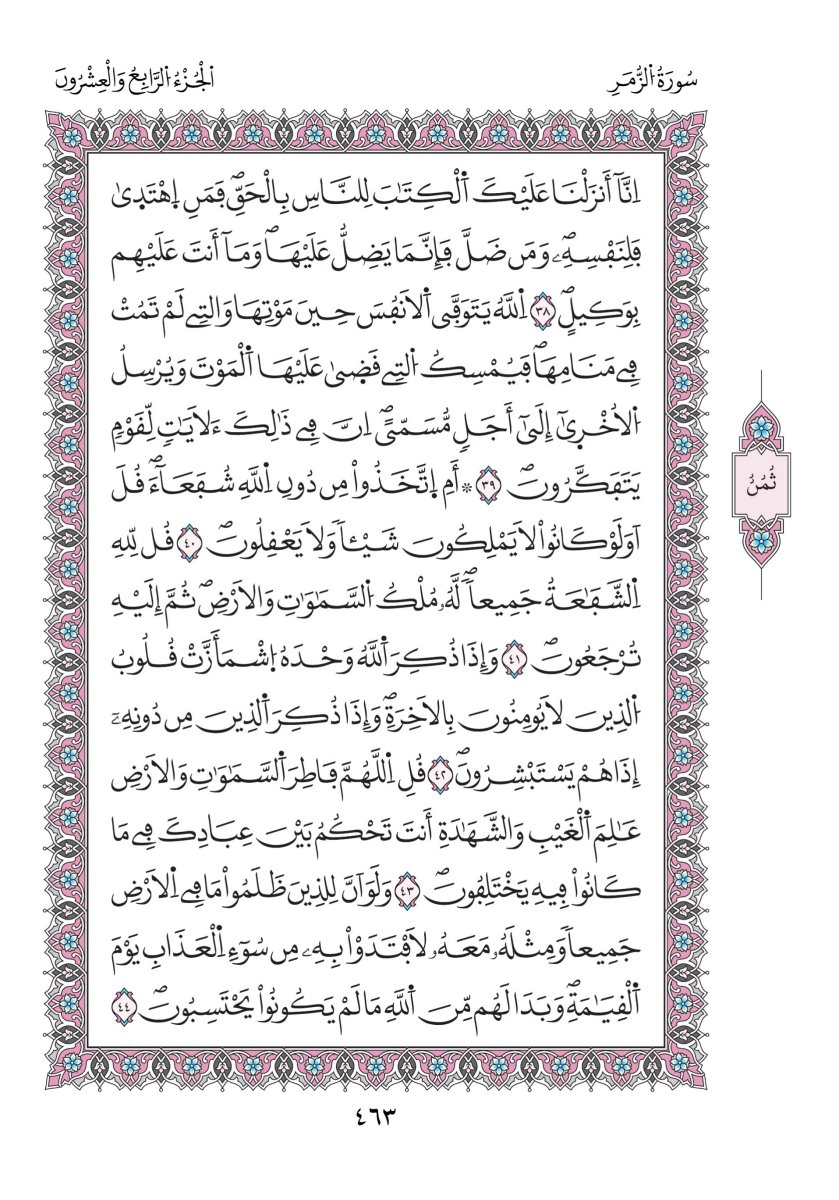 سُورَةُ الزُّمَرِ
الْجُزْءُ الرَّابِعُ وَالْعِشْرُونَ
اِنَّآ أَنزَلْنَا عَلَيْكَ اَ۬لْكِتَٰبَ لِلنَّاسِ بِالْحَقِّۖ فَمَنِ اِ۪هْتَد۪ىٰ
فَلِنَفْسِهِۦۖ وَمَن ضَلَّ فَإِنَّمَا يَضِلُّ عَلَيْهَاۖ وَمَآ أَنتَ عَلَيْهِم
بِوَكِيلٍۖ ٣٨ اِ۬للَّهُ يَتَوَفَّى اَ۬لَانفُسَ حِينَ مَوْتِهَا وَالتِے لَمْ تَمُتْ
فِے مَنَامِهَاۖ فَيُمْسِكُ اُ۬لتِے قَض۪ىٰ عَلَيْهَا اَ۬لْمَوْتَ وَيُرْسِلُ
اُ۬لُاخْر۪ىٰٓ إِلَىٰٓ أَجَلٖ مُّسَمّىًۖ اِنَّ فِے ذَٰلِكَ ءَلَايَٰتٖ لِّقَوْمٖ
يَتَفَكَّرُونَۖ ٣٩ ۞ أَمِ اِ۪تَّخَذُواْ مِن دُونِ اِ۬للَّهِ شُفَعَآءَۖ قُلَ
اَوَلَوْ كَانُواْ لَا يَمْلِكُونَ شَيْـٔاٗ وَلَا يَعْقِلُونَۖ ٤٠ قُل لِّلهِ
اِ۬لشَّفَٰعَةُ جَمِيعاٗۖ لَّهُۥ مُلْكُ اُ۬لسَّمَٰوَٰتِ وَالَارْضِۖ ثُمَّ إِلَيْهِ
تُرْجَعُونَۖ ٤١ وَإِذَا ذُكِرَ اَ۬للَّهُ وَحْدَهُ اُ۪شْمَأَزَّتْ قُلُوبُ
اُ۬لذِينَ لَا يُومِنُونَ بِالَاخِرَةِۖ وَإِذَا ذُكِرَ اَ۬لذِينَ مِن دُونِهِۦٓ
إِذَا هُمْ يَسْتَبْشِرُونَۖ ٤٢ قُلِ اِ۬للَّهُمَّ فَاطِرَ اَ۬لسَّمَٰوَٰتِ وَالَارْضِ
عَٰلِمَ اَ۬لْغَيْبِ وَالشَّهَٰدَةِ أَنتَ تَحْكُمُ بَيْنَ عِبَادِكَ فِے مَا
كَانُواْ فِيهِ يَخْتَلِفُونَۖ ٤٣ وَلَوَ اَنَّ لِلذِينَ ظَلَمُواْ مَا فِے اِ۬لَارْضِ
جَمِيعاٗ وَمِثْلَهُۥ مَعَهُۥ لَافْتَدَوْاْ بِهِۦ مِن سُوٓءِ اِ۬لْعَذَابِ يَوْمَ
اَ۬لْقِيَٰمَةِۖ وَبَدَا لَهُم مِّنَ اَ۬للَّهِ مَا لَمْ يَكُونُواْ يَحْتَسِبُونَۖ ٤٤
ثُمُنُ
٤٦٣